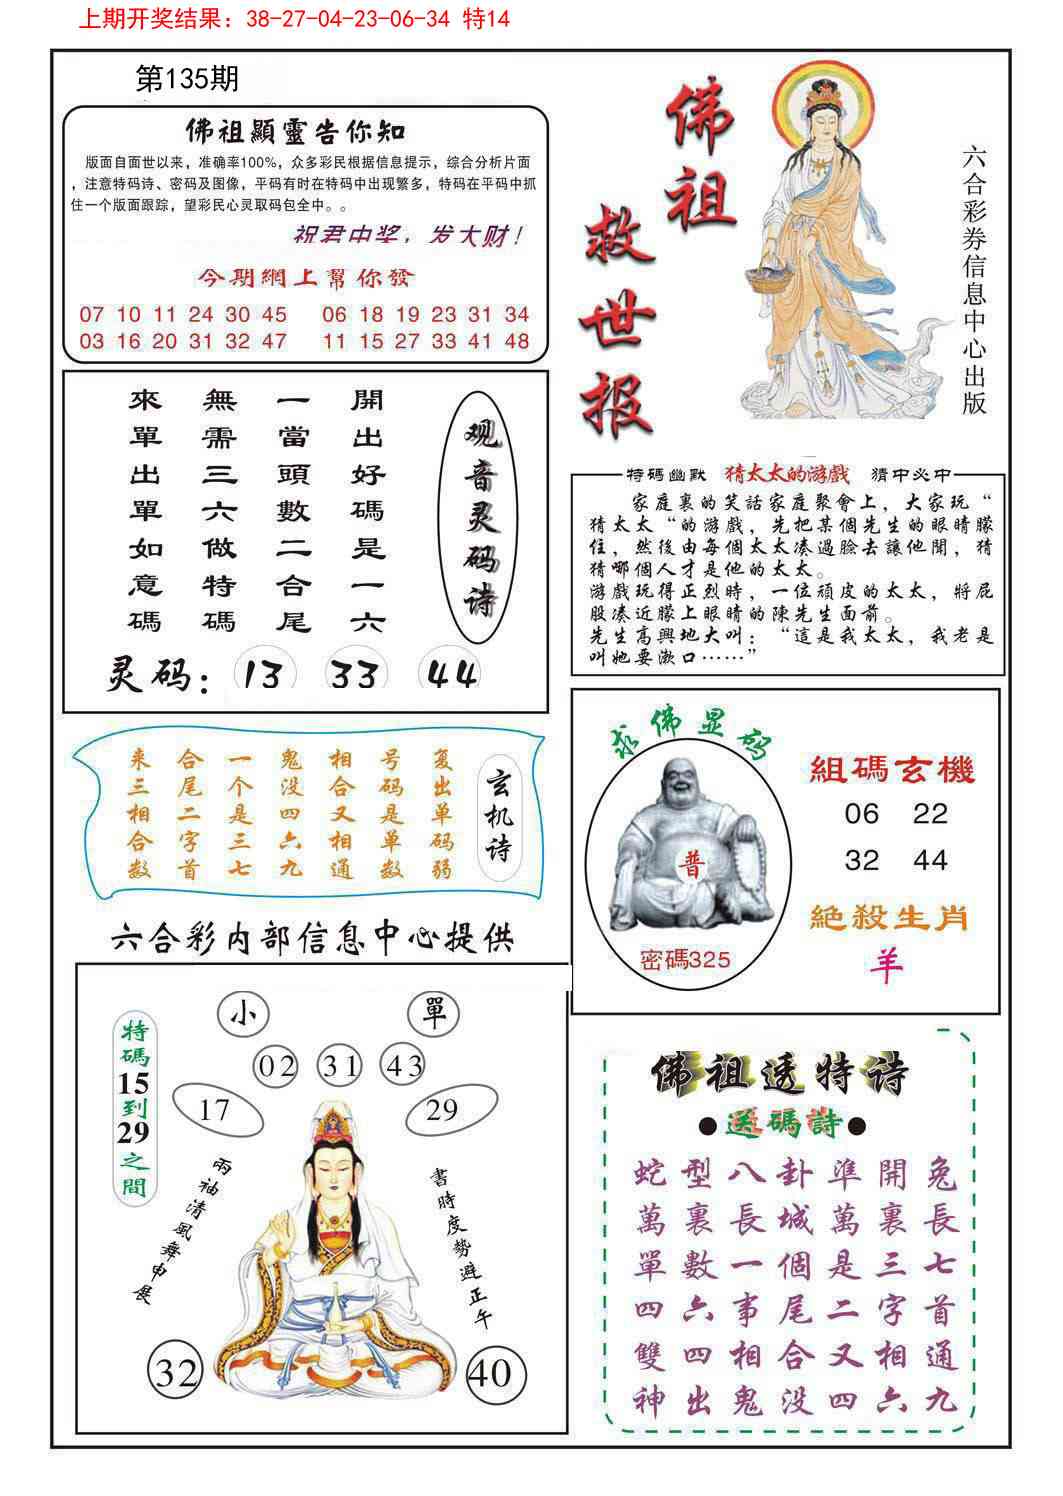 上期开奖结果：38-27-04-23-06-34 特14
第135期
佛祖顯靈告你知
版面自面世以来，准确率100%，众多彩民根据信息提示，综合分析片面
，注意特码诗、密码及图像，平码有时在特码中出现繁多，特码在平码中抓
住一个版面跟踪，望彩民心灵取码包全中。。
祝君中奖，发大财！
今期網上幫你發
07 10 11 24 30 45 06 18 19 23 31 34
03 16 20 31 32 47 11 15 27 33 41 48
佛祖
救世报
六合彩券信息中心出版
观音灵码诗
開出好碼是一六
一當頭數二合尾
無需三六做特碼
來單出單如意碼
灵码：13 33 44
特碼幽默 猜太太的游戲 猜中必中
家庭裏的笑話家庭聚會上，大家玩“
猜太太“的游戲，先把某個先生的眼睛矇
住，然後由每個太太凑過臉去讓他聞，猜
猜哪個人才是他的太太。
游戲玩得正烈時，一位頑皮的太太，將屁
股凑近朦上眼睛的陳先生面前。
先生高興地大叫：“這是我太太，我老是
叫她要漱口……”
玄机诗
复出单码弱
号码是单数
相合又相通
鬼没四六九
一个是三七
合尾二字首
来三相合数
求佛显码
普
密碼325
組碼玄機
06 22
32 44
絕殺生肖
羊
六合彩内部信息中心提供
特碼15到29之間
小 單
02 31 43
17 29
兩袖清風舞申展
書時度勢避正午
32 40
佛祖透特诗
●送碼詩●
蛇型八卦準開兔
萬裏長城萬裏長
單數一個是三七
四六事尾二字首
雙四相合又相通
神出鬼没四六九